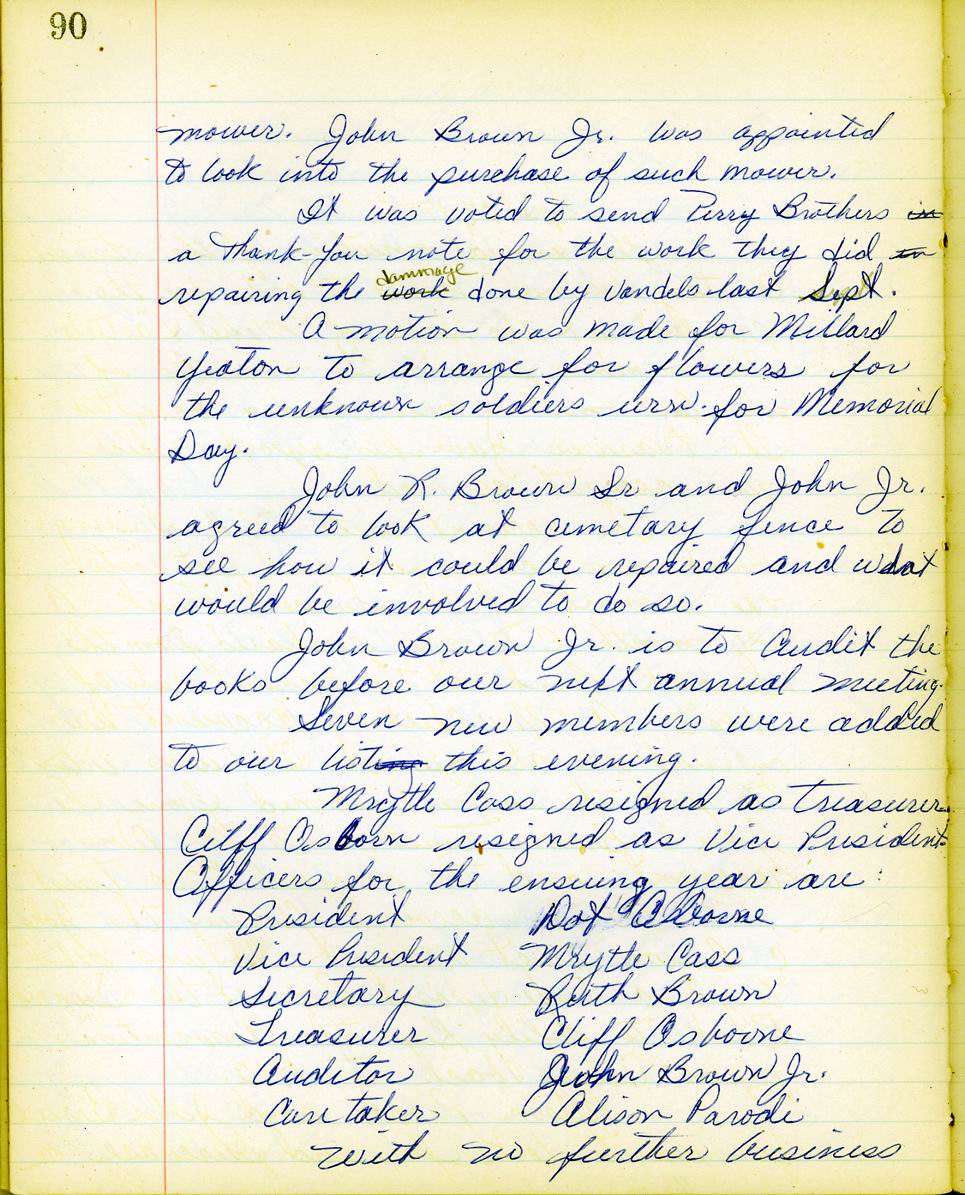 90
mower. John Brown Jr. was appointed
to look into the purchase of such mower.
It was voted to send Perry Brothers in
a Thank-You note for the work they did in
dammage
repairing the work done by vandels last Sept.
A motion was made for Millard
Yeaton to arrange for flowers for
the unknown soldiers urn for Memorial
Day.
John R. Brown Sr and John Jr.
agreed to look at cemetary fence to
see how it could be repaired and what
would be involved to do so.
John Brown Jr. is to Audit the
books before our next annual meeting.
Seven new members were added
to our listing this evening.
Mrytle Cass resigned as treasurer.
Cilff Osborn resigned as Vice President.
Officers for the ensuing year are :
President Dot Osborne
Vice President Mrytle Cass
Secretary Ruth Brown
Treasurer Cliff Osborne
Auditor John Brown Jr.
Caretaker Alison Parodi
With no further business